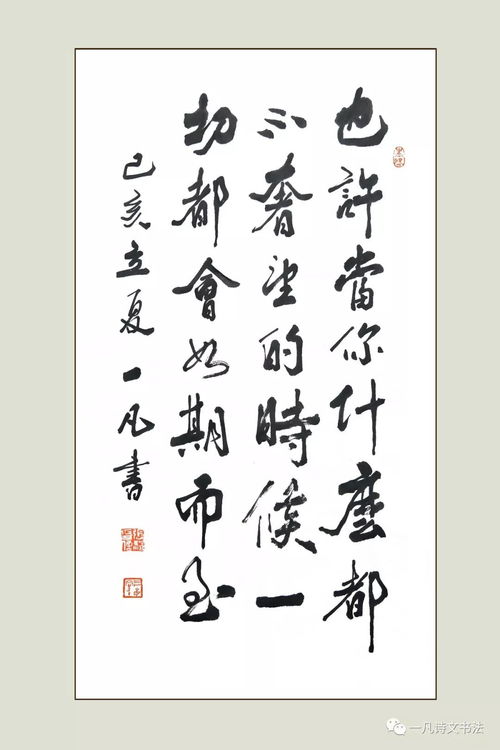 也許當你什麼都
不奢望的時候一
切都會如期而至
己亥立夏一凡書
一凡诗文书法